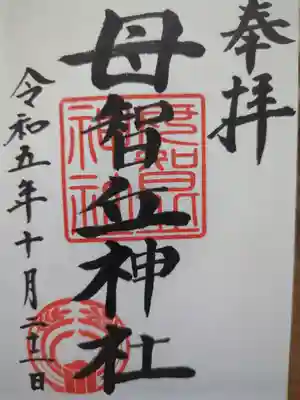 奉拝
母智丘神社
母智丘
神社
令和五年十月
日